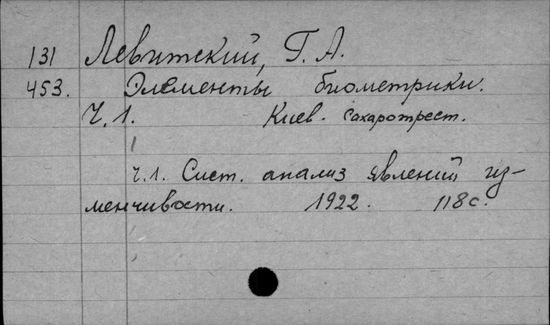 131 Левитский, Г. А.
453. Элементы биометрики.
Ч. 1. Киев. Сахаротрест.
ч. 1. Сист. анализ явлений из-
менчивости. 1922. 118 с.